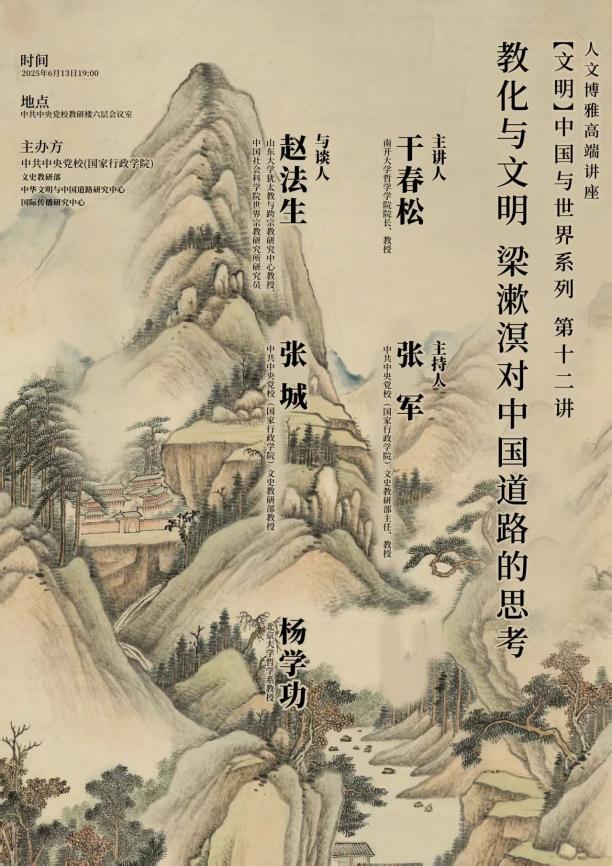 人文博雅高端讲座
【文明】中国与世界系列 第十二讲
教化与文明 梁漱溟对中国道路的思考
主讲人
干春松
南开大学哲学院院长、教授
主持人
张军
中共中央党校（国家行政学院）文史教研部主任、教授
与谈人
赵法生
山东大学犹太教与跨宗教研究中心教授、
中国社会科学院世界宗教研究所研究员
张城
中共中央党校（国家行政学院）文史教研部教授
杨学功
北京大学哲学系教授
时间
2025年6月13日19:00
地点
中共中央党校教研楼六层会议室
主办方
中共中央党校(国家行政学院)
文史教研部
中华文明与中国道路研究中心
国际传播研究中心